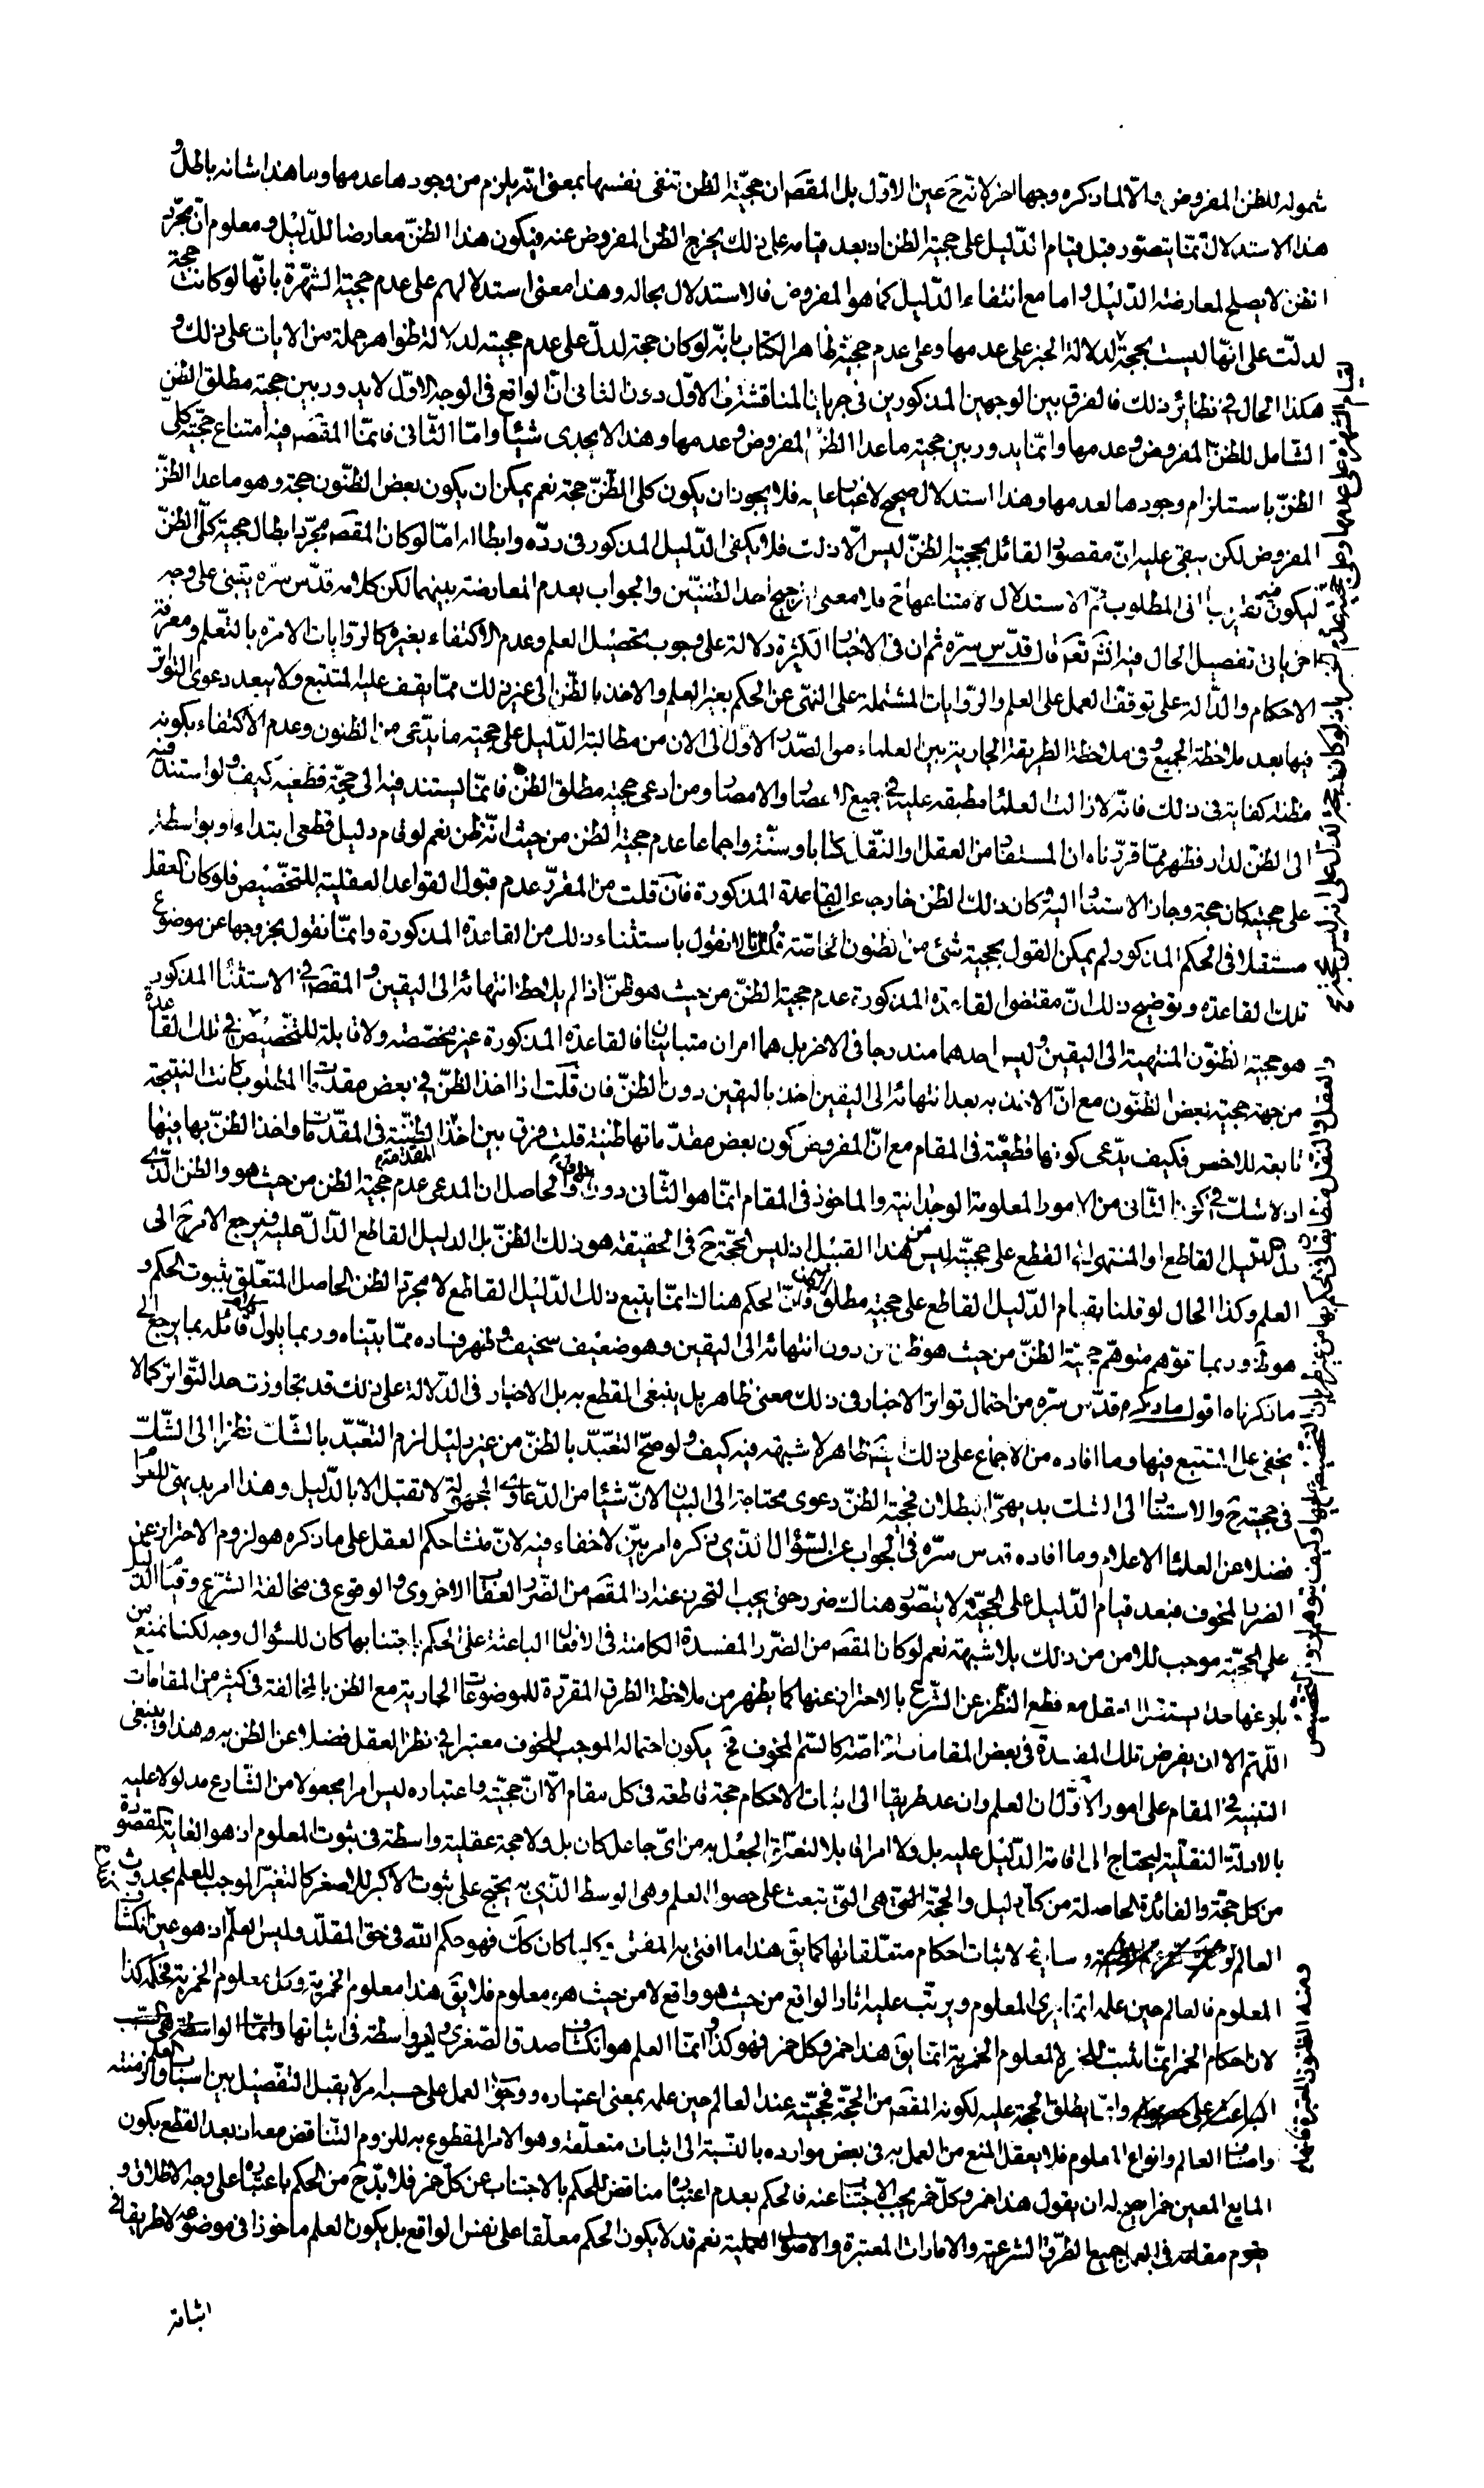 شموله للظن المفروض والّا لما ذكره وجها اخر لانّه ح عين الاوّل بل المقصَ ان حجيّة الظن تنفى نفسها بمعنى انّه يلزم من وجودها عدمها وما هذا شانه باطل و
هذا الاستدلال انّما يتصوّر قبل قيام الدّليل على حجية الظن اذ بعد قيامه على ذلك يخرج الظن المفروض عنه فيكون هذا الظنّ معارضا للدّليل ومعلوم انّ مجرّد
الظن لا يصلح لمعارضة الدّليل واما مع انتفاء الدّليل كما هو المفروض فالاستدلال بحاله وهذا معنى استدلالهم على عدم حجية الشّهرة بانّها لو كانت حجة
لدلّت على انّها ليست بحجّة لدلالة الخبر على عدمها وعلى عدم حجيّة ظاهر الكتاب بانّه لو كان حجة لدلّ على عدم حجيته لدلالة ظواهر جملة من الايات على ذلك و
هكذا الحال فى نظائر ذلك فالفرق بين الوجهين المذكورين فى جريان المناقشة فى الاوّل دون الثانى انّ الواقع فى الوجه الاوّل لا يدور بين حجية مطلق الظن
الشامل للظنّ المفروض وعدمها وانّما يدور بين حجية ما عدا الظنّ المفروض وعدمها وهذا لا يجدى شيئا وامّا الثّانى فانّما المقصَ فيه امتناع حجيّة كلى
الظنّ باستلزام وجودها لعدمها وهذا استدلال صحيح لا غبار عليه فلا يجوز ان يكون كلى الظنّ حجة نعم يمكن ان يكون بعض الظنّون حجة وهو ما عدا الظنّ
المفروض لكن يبقى عليه انّ مقصود القائل بحجية الظنّ ليس الّا ذلك فلا يكفى الدّليل المذكور فى ردّه وابطاله امّا لو كان المقصَ مجرّد ابطال حجية كلّى الظنّ
ليكون فيه تقريبا الى المطلوب تمّ الاستدلال لامتناعها ح فلا معنى لترجيح احد الظنيّن والجواب بعدم المعارضة بينهما لكن كلامه قدّس سرّه يبتنى على وجه
اخر ياتى تفصيل الحال فيه انشَ تعَ قال قدّس سرّه ثم ان فى الاخبار الكثيرة دلالة على وجوب تحصيل العلم وعدم الاكتفاء بغيره كالرّوايات الامرة بالتعلّم ومعرفة
الاحكام والدّالة على توقّف العمل على العلم والرّوايات المشتملة على النهى عن الحكم بغير العلم والاخذ بالظّن الى غير ذلك ممّا يقف عليه المتتبع ولا يبعد دعوى التواتر
فيها بعد ملاحظة الجميع وفى ملاحظة الطريقة الجارية بين العلماء من الصّدر الاوّل الى الان من مطالبة الدّليل على حجية ما يدّعى من الظنون وعدم الاكتفاء بكونه
مظنة كفاية فى ذلك فانّه لا زالت العلماء مطبقة عليه فى جميع الاعصار والامصار ومن ادعى حجية مطلق الظنّ فانّما يستند فيه الى حجّة قطعية كيف ولو استند فيه
الى الظنّ لدار فظهر ممّا قرّرناه ان المستفاد من العقل والنّقل كتابا وسنّة واجماعا عدم حجية الظن من حيث انّه ظن نعم لو قام دليل قطعى ابتداء او بواسطة
على حجيته كان حجة وجاز الاستناد اليه وكان ذلك الظن خارجا عن القاعدة المذكورة فان قلت من المقرّر عدم قبول القواعد العقلية للتّخصيص فلو كان العقل
مستقلا فى الحكم المذكور لم يمكن القول بحجية شئ من الظنون الخاصّة قلت لا نقول باستثناء ذلك من القاعدة المذكورة وانّما نقول بخروجها عن موضوع
تلك القاعدة وتوضيح ذلك انّ مقتضى القاعدة المذكورة عدم حجية الظنّ من حيث هو ظنّ اذا لم يلاحظ انتهائه الى اليقين والمقصَ فى الاستثناء المذكور
هو حجية الظنون المنتهية الى اليقين وليس احدهما مندرجا فى الاخر بل هما امران متباينان فالقاعدة المذكورة غير مخصّصة ولا قابلة للتّخصيص فى تلك القاعدة
من جهة حجية بعض الظنّون مع انّ الاخذ به بعد انتهائه الى اليقين اخذ باليقين دون الظنّ فان قلت اذا اخذ الظنّ فى بعض مقدمات المطلوب كانت النتيجة
تابعة للاخس فكيف يدّعى كونها قطعيّة فى المقام مع انّ المفروض كون بعض مقدّماتها ظنية قلت فرق بين اخذ الظنيّة فى المقدّمات واخذ الظنّ بها فيها
اذ لا شكّ فى كون الثّانى من الامور المعلومة الوجدانية والماخوذ فى المقام انّما هو الثّانى دون الاول والحاصل ان المدعى عدم حجية الظن من حيث هو والظن الّذى
دلّ الدّليل القاطع او المنتهى الى القطع على حجيّته ليس من هذا القبيل اذ ليس الحجّة ح فى الحقيقة هو ذلك الظنّ بل الدليل القاطع الدّال عليه فيرجع الامر ح الى
العلم وكذا الحال لو قلنا بقيام الدّليل القاطع على حجية مطلق الظن لانّ الحكم هناك انّما يتبع ذلك الدّليل القاطع لا مجرّد الظن الحاصل المتعلّق بثبوت الحكم و
هو ظَ وربما توهم متوهّم حجية الظنّ من حيث هو ظن من دون انتهائه الى اليقين وهو ضعيف سخيف وظهر فساده ممّا بيّناه وربما يأوّل كلام قائله بما يرجع الى
ما ذكرناه اقول ما ذكره قدّس سرّه من احتمال تواتر الاخبار فى ذلك معنى ظاهر بل ينبغى القطع به بل الاخبار فى الدّلالة على ذلك قد تجاوزت حد التّواتر كما لا
يخفى على المتتبع فيها وما افاده من الاجماع على ذلك ظاهر لا شبهة فيه كيف ولو صحّ التعبّد بالظنّ من غير دليل لزم التعبّد بالشّك نظرا الى الشّك
فى حجيته ح والاستناد الى الشك بديهىّ البطلان فحجية الظنّ دعوى محتاجة الى البيان لانّ شيئا من الدّعاوى المجهولة لا تقبل الا بالدّليل وهذا امر بديهى للعوام
فضلا عن العلماء الاعلام وما افاده قدس سرّه فى الجواب عن السّؤال الذى ذكره امر بيّن لا خفاء فيه لانّ منشا حكم العقل على ما ذكره هو لزوم الاحتراز عن
الضرر المخوف فبعد قيام الدّليل على الحجيّة لا يتصوّر هناك ضرر حتى يجب التحرز عنه اذ المقصَ من الضّرر العقاب الاخروى والوقوع فى مخالفة الشّرع وقيام الدّليل
على الحجيّة موجب للامن من ذلك بلا شبهة نعم لو كان المقصَ من الضّرر المفسدة الكامنة فى الافعال الباعثة على الحكم باجتنابها كان للسّؤال وجه لكنا نمنع من
بلوغها حدا يستقل العقل مع قطع النّظر عن الشّرع بالاحتراز عنها كما يظهر من ملاحظة الطرق المقرّرة للموضوعات الجارية مع الظن بالمخالفة فى كثير من المقامات
اللّهم الا ان يفرض تلك المفسدة فى بعض المقامات خاصّة كالسّم المخوف فح يكون احتماله الموجب للخوف معتبرا فى نظر العقل فضلا عن الظن به هذا وينبغى
التنبيه فى المقام على امور الاوّل ان العلم وان عد طريقا الى اثبات الاحكام حجة قاطعة فى كل مقام الّا انّ حجيّته واعتباره ليس امرا مجعولا من الشّارع مدلولا عليه
بالادلة النقليّة ليحتاج الى اقامة الدّليل عليه بل ولا امرا قابلا لتعلّق الجعل به من اىّ جاعل كان بل ولا حجة عقلية واسطة فى ثبوت المعلوم اذ هو الغاية المقصودة
من كل حجّة والفائدة الحاصلة من كل دليل والحجّة انّما هى الّتى تبعث على حصول العلم وهى الوسط الّذى به يحتج على ثبوت الاكبر للاصغر كالتغيّر الموجب للعلم بحدوث
العالم لاثبات احكام متعلّقاتها كما يقَ هذا ما افتى به المفتى وكلما كان كَك فهو حكم اللّه فى حق المقلّد وليس العلم اذ هو عين انكشاف
المعلوم فالعالم حين علمه انّما يرى المعلوم ويرتّب عليه اثار الواقع من حيث هو واقع لا من حيث هو معلوم فلا يقَ هذا معلوم الخمرية وكل معلوم الخمرية فحكمه كذا
لان احكام الخمر انّما تثبت للخمر لا لمعلوم الخمرية انّما يقَ هذا خمر وكل خمر فهو كذا وانّما العلم هو انكشاف صدق الصّغرى لا واسطة فى اثباتها
وانّما يطلق الحجة عليه لكونه المقصَ من الحجّة فحجيّته عند العالم حين علمه بمعنى اعتباره ووجوب العمل على حسبه امر لا يقبل التّفصيل بين اسباب العلم وازمنته
واصناف العالم وانواع المعلوم فلا يعقل المنع من العمل به فى بعض موارده بالنّسبة الى اثبات متعلّقه وهو الامر المقطوع به للزوم التّناقض معه اذ بعد القطع بكون
المايع المعين خمرا يصح له ان يقول هذا خمر وكلّ خمر يجب الاجتناب عنه فالحكم بعدم اعتباره مناقض للحكم بالاجتناب عن كلّ خمر فلا بدّ ح من الحكم باعتباره على وجه الاطلاق و
يقوم مقامه فى العمل جميع الطّرق الشرعية والامارات المعتبرة والاصول العملية نعم قد لا يكون الحكم معلّقا على نفس الواقع بل يكون العلم ماخوذا فى موضوعه لا طريقا فى
اثباته
لقيام الشهرة على عدمها وعلى حجية عدم الخبر بانه لو كان حجة لدل على انه ليس بحجة
والعقل والنقل متطابقان فى الحكم بها من غير طريان التخصيص عليها وكيف يتوهم لزوم التخصيص